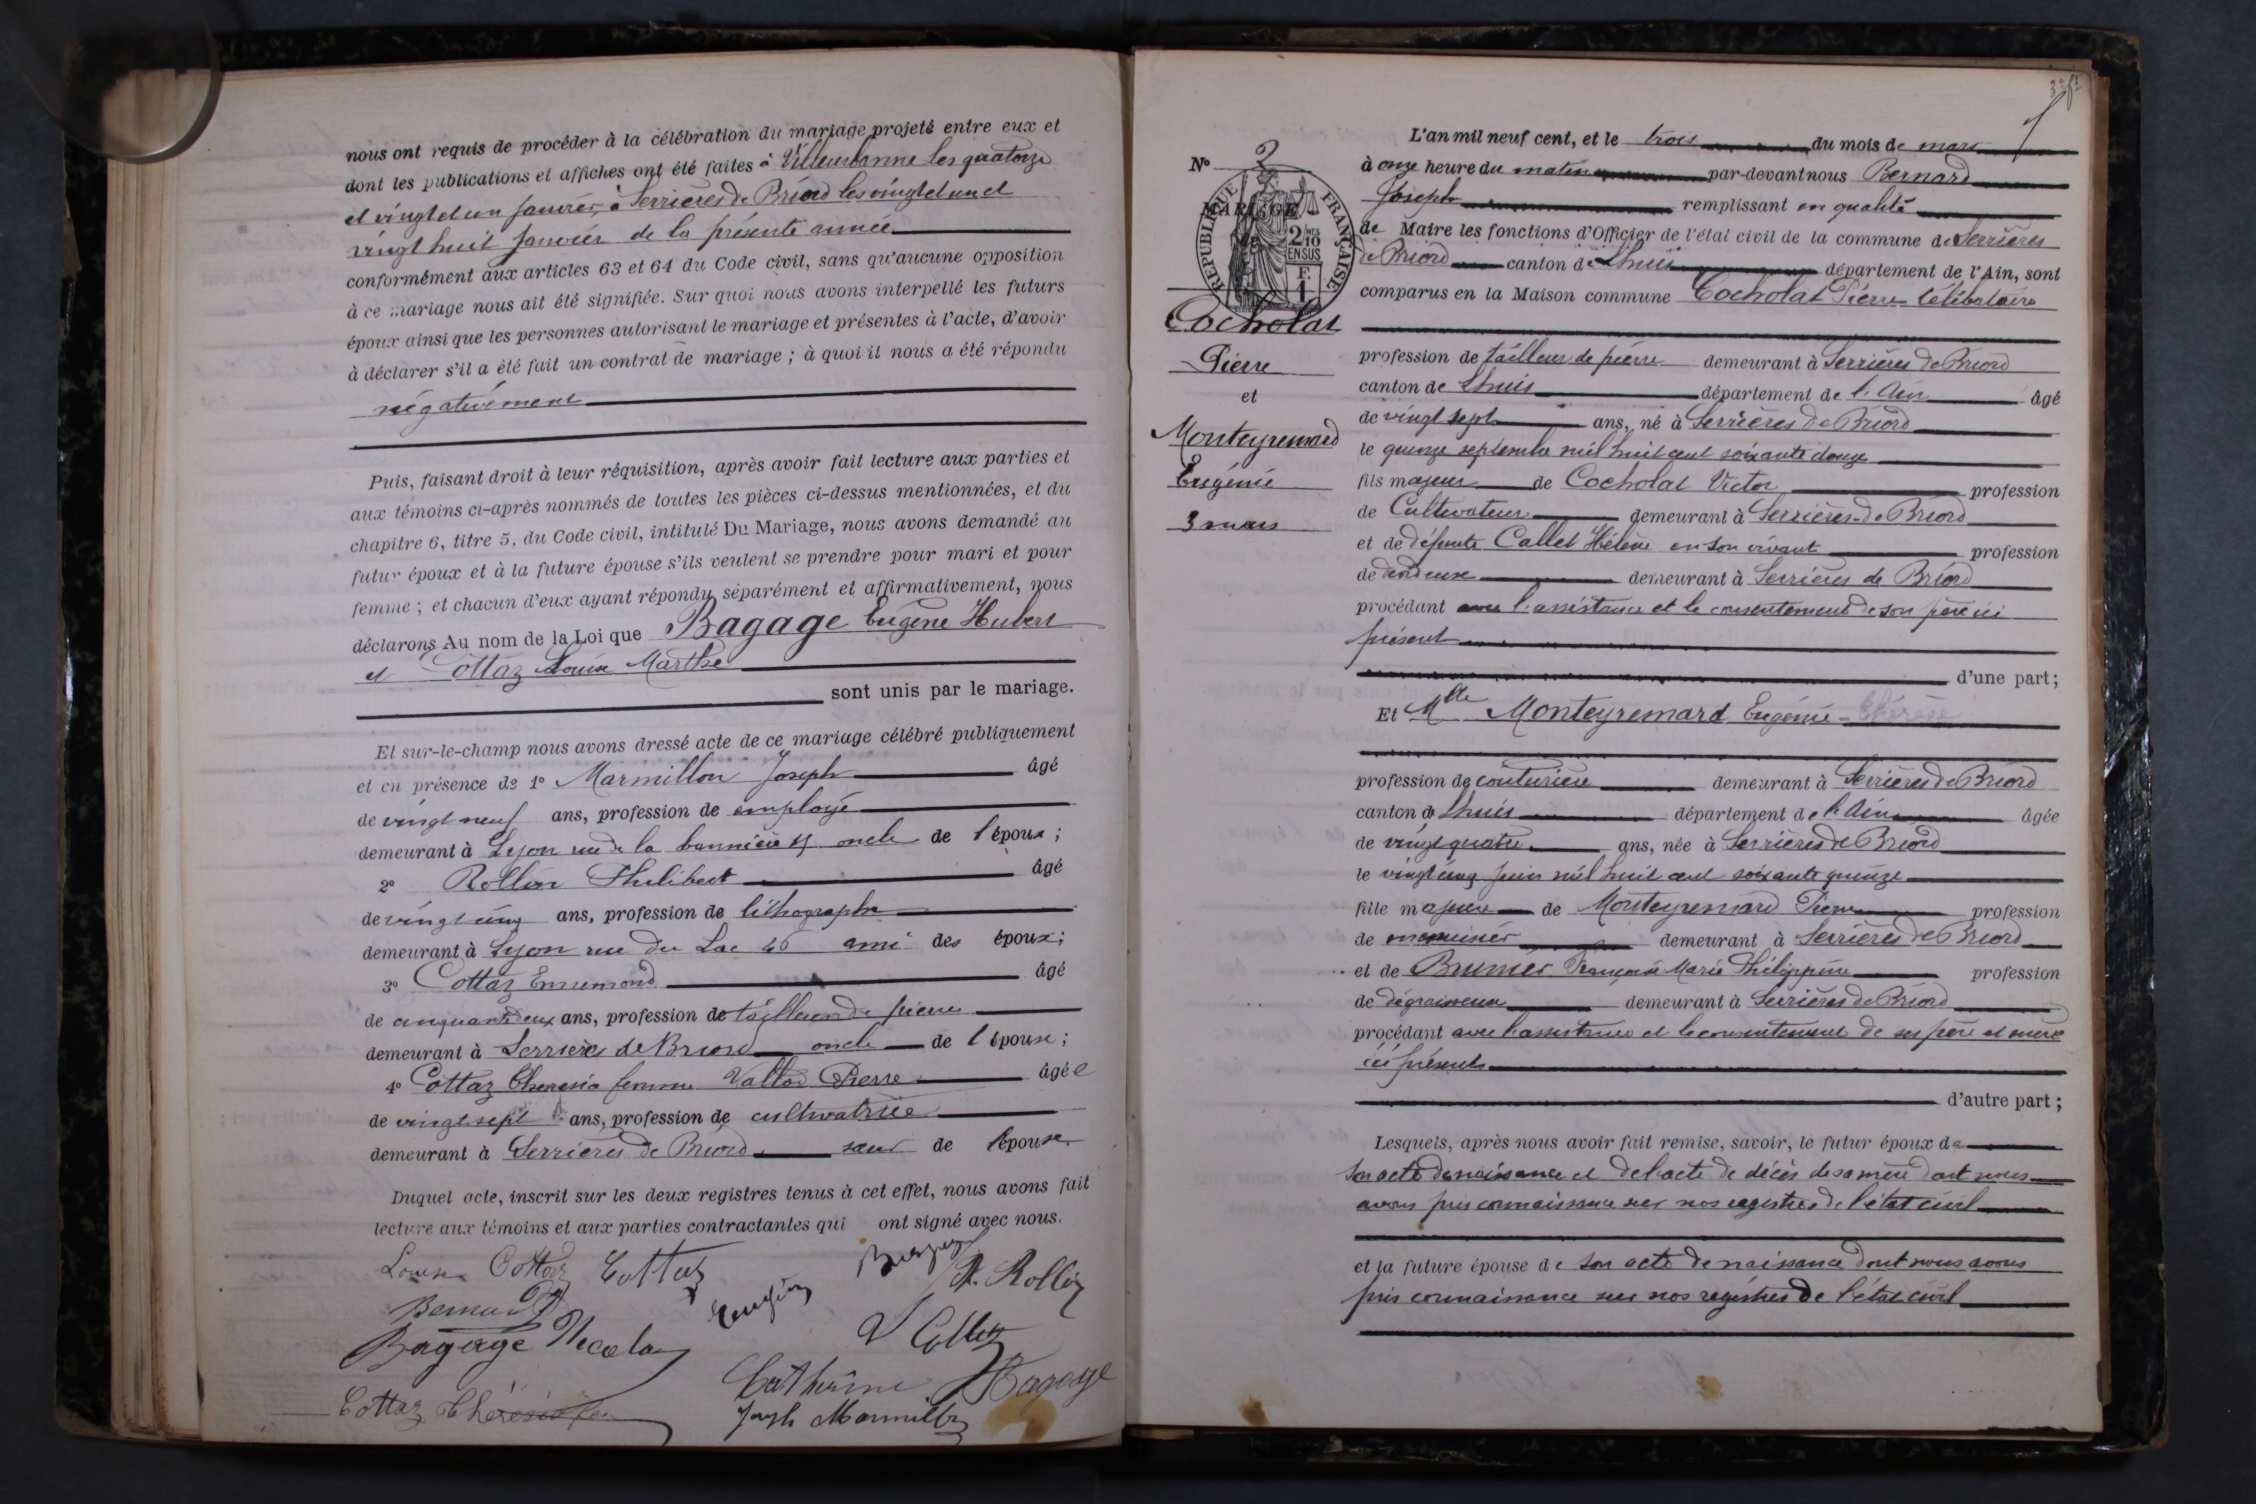 nous ont requis de procéder à la célébration du mariage projeté entre eux et
dont les publications et affiches ont été faites à Villeurbanne les quatorze
et vingt et un janvier, à Serrières de Briord les vingt et un et
vingt huit janvier de la présente année
conformément aux articles 63 et 64 du Code civil, sans qu'aucune opposition
à ce mariage nous ait été signifiée. Sur quoi nous avons interpellé les futurs
époux ainsi que les personnes autorisant le mariage et présentes à l'acte, d'avoir
à déclarer s'il a été fait un contrat de mariage ; à quoi il nous a été répondu
négativement
Puis, faisant droit à leur réquisition, après avoir fait lecture aux parties et
aux témoins ci-après nommés de toutes les pièces ci-dessus mentionnées, et du
chapitre 6, titre 5, du Code civil, intitulé Du Mariage, nous avons demandé au
futur époux et à la future épouse s'ils veulent se prendre pour mari et pour
femme ; et chacun d'eux ayant répondu séparément et affirmativement, nous
déclarons Au nom de la Loi que Bagage Eugène Hubert
et Cottaz Louise Marthe
sont unis par le mariage.
Et sur-le-champ nous avons dressé acte de ce mariage célébré publiquement
et en présence de 1° Marmillon Joseph âgé
de vingt neuf ans, profession de employé
demeurant à Lyon rue de la bannière oncle de l'époux ;
2° Rollin Philibert âgé
de vingt cinq ans, profession de lithographe
demeurant à Lyon rue du Lac 46 ami des époux ;
3° Cottaz Ennemond âgé
de cinquante deux ans, profession de tailleur de pierres
demeurant à Serrières de Briord oncle de l'épouse ;
4° Cottaz Theresia femme Vallod Pierre âgée
de vingt sept ans, profession de cultivatrice
demeurant à Serrières de Briord sœur de l'épouse
Duquel acte, inscrit sur les deux registres tenus à cet effet, nous avons fait
lecture aux témoins et aux parties contractantes qui ont signé avec nous.
Louise Cottaz Cottaz
P. Rollin
Bernard
Bagage Nicolas
Catherine Bagage
Cottaz Thérésia
Joseph Marmillon
N° 2
MARIAGE
RÉPUBLIQUE FRANÇAISE
2/10 EN SUS
F. 1
Cocholat
Pierre
et
Monteyremard
Eugénie
3 mars
L'an mil neuf cent, et le trois du mois de mars
à onze heure du matin par-devant nous Bernard
Joseph remplissant en qualité
de Maire les fonctions d'Officier de l'état civil de la commune de Serrières
de Briord canton de Lhuis département de l'Ain, sont
comparus en la Maison commune Cocholat Pierre célibataire
profession de tailleur de pierre demeurant à Serrières de Briord
canton de Lhuis département de l'Ain âgé
de vingt sept ans, né à Serrières de Briord
le quinze septembre mil huit cent soixante douze
fils majeur de Cocholat Victor profession
de Cultivateur demeurant à Serrières de Briord
et de défunte Callet Hélène en son vivant profession
de demeurant à Serrières de Briord
procédant avec l'assistance et le consentement de son père ici
présent
d'une part ;
Et Mlle Monteyremard Eugénie Thérèse
profession de couturière demeurant à Serrières de Briord
canton de Lhuis département de l'Ain âgée
de vingt quatre ans, née à Serrières de Briord
le vingt cinq juin mil huit cent soixante quinze
fille majeure de Monteyremard Pierre profession
de menuisier demeurant à Serrières de Briord
et de Brunier Françoise Marie Philippine profession
de dégraisseuse demeurant à Serrières de Briord
procédant avec l'assistance et le consentement de ses père et mère
ici présents
d'autre part ;
Lesquels, après nous avoir fait remise, savoir, le futur époux de
son acte de naissance et de l'acte de décès de sa mère dont nous
avons pris connaissance sur nos registres de l'état civil
et la future épouse de son acte de naissance dont nous avons
pris connaissance sur nos registres de l'état civil